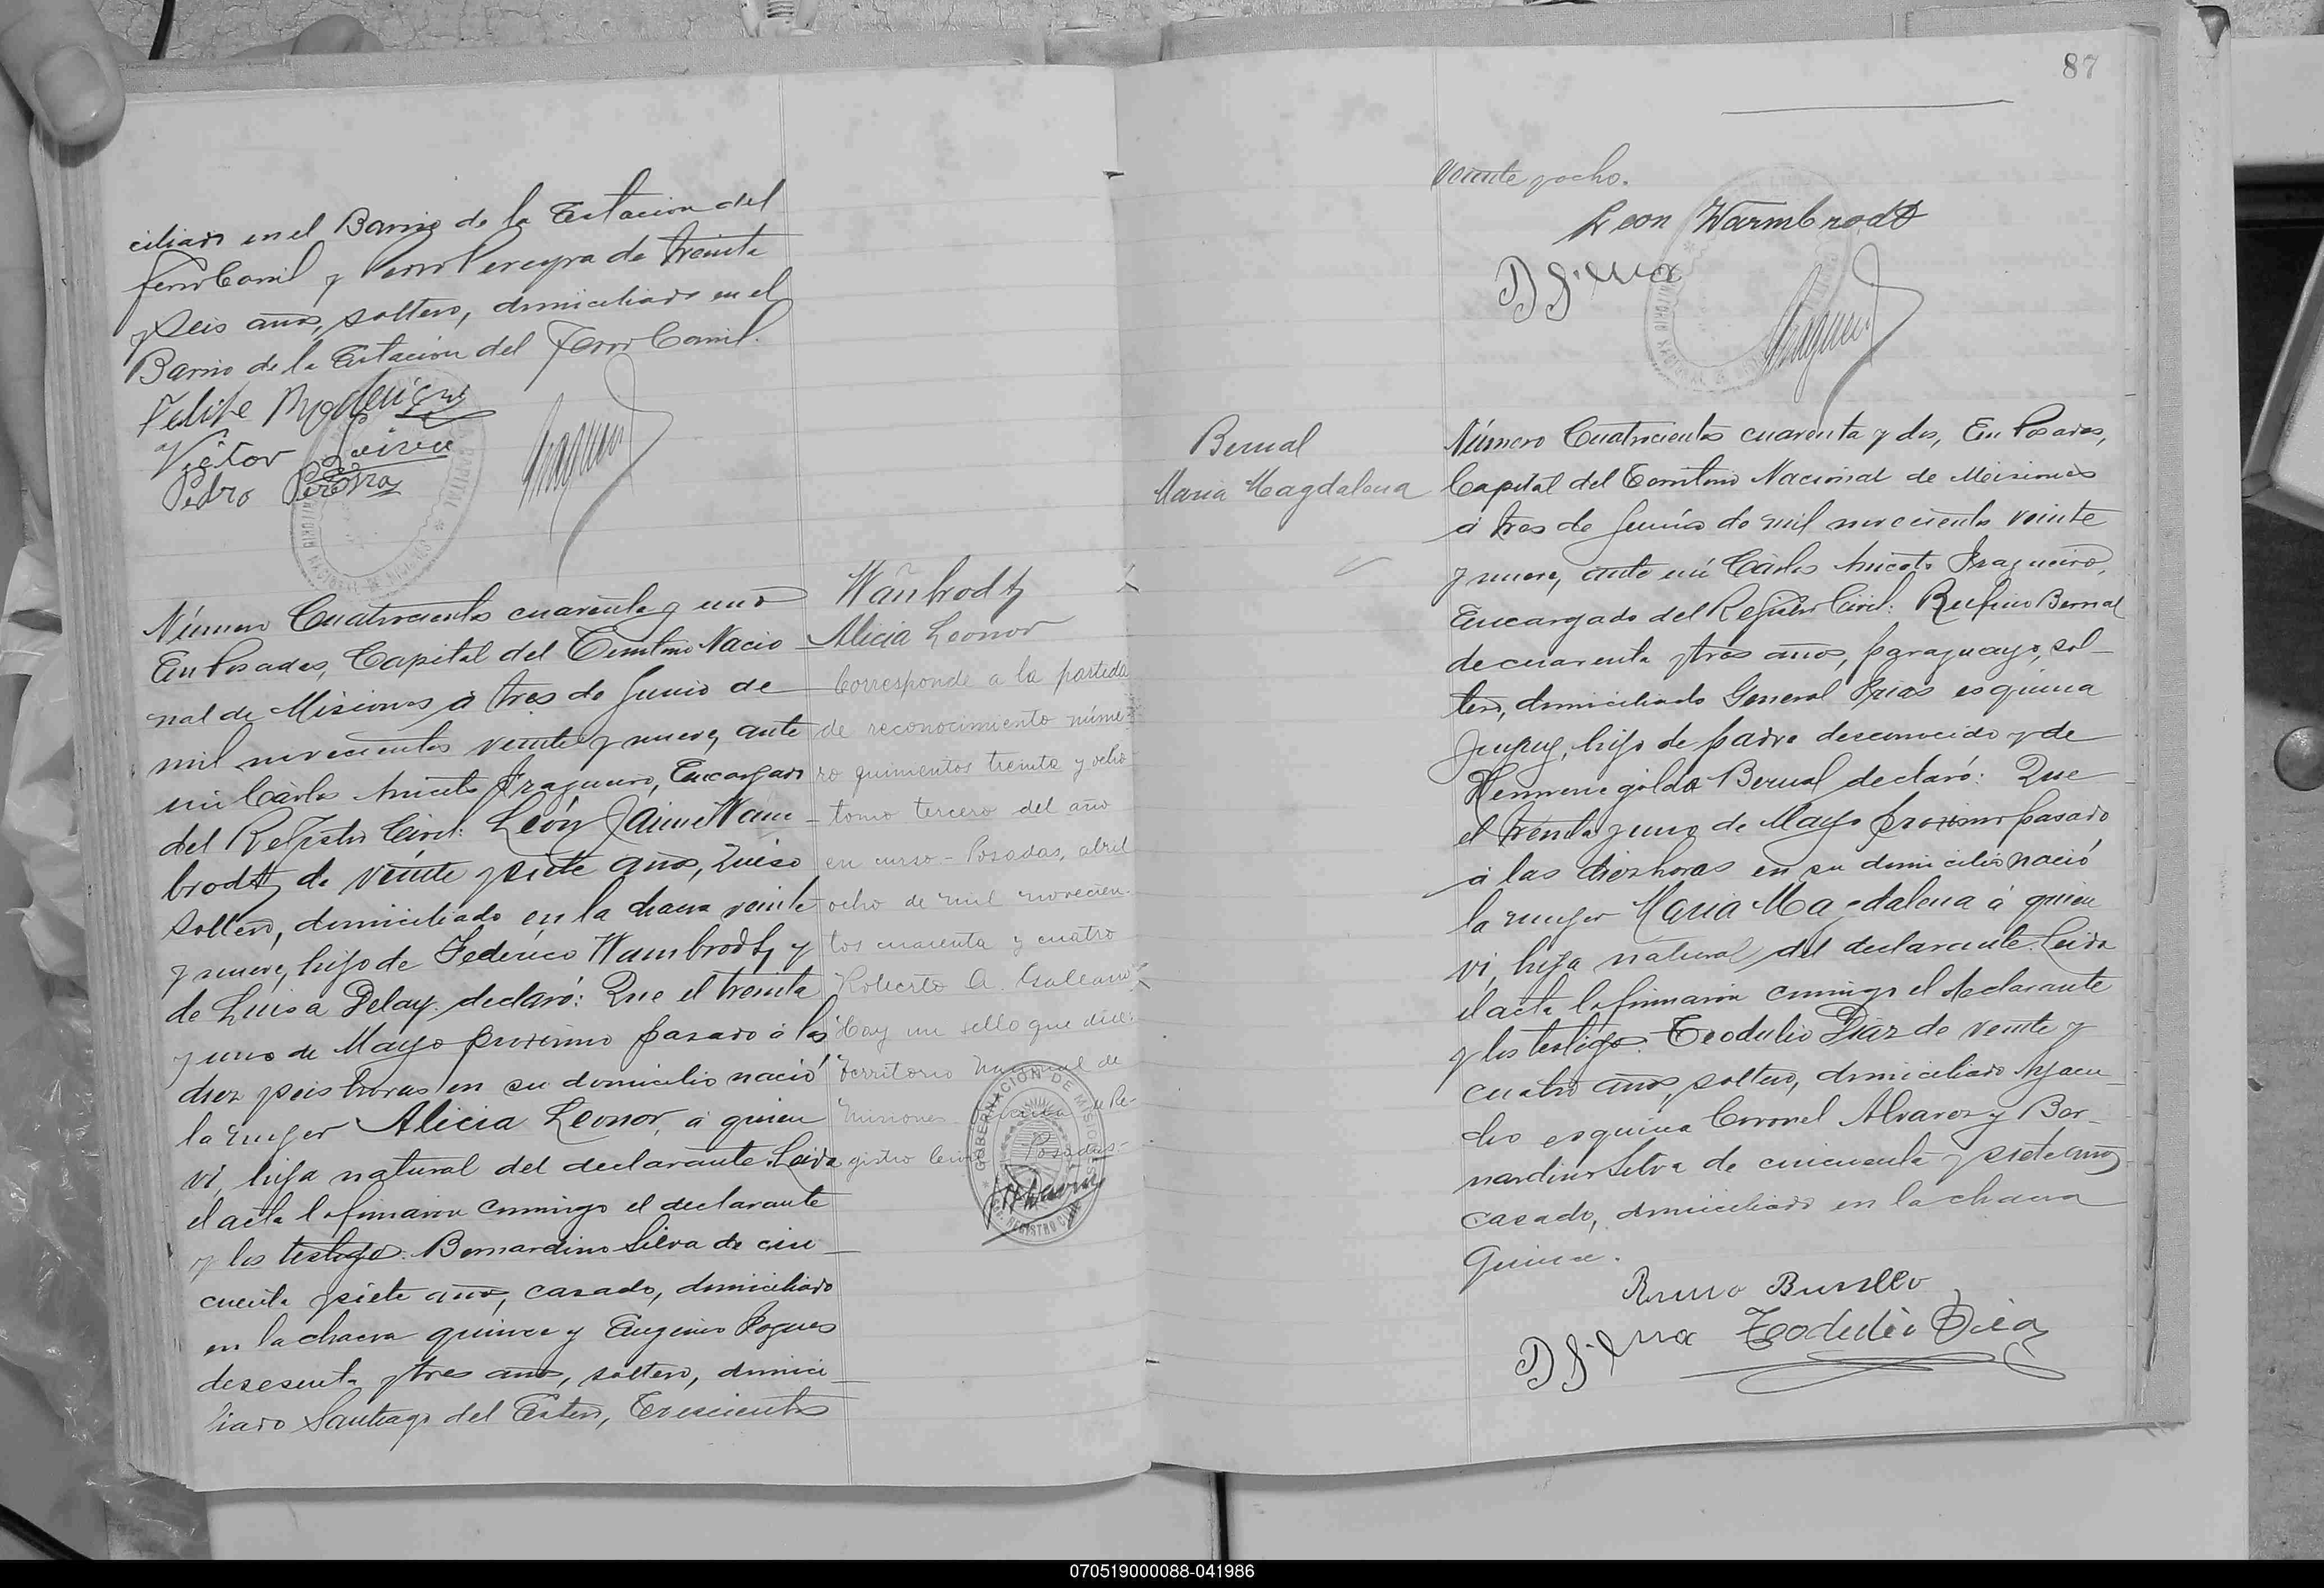 ciliado en el Barrio de la Estacion del
ferro Carril y Pedro Pereyra de treinta
y seis años, soltero, domiciliado en el
Barrio de la Estacion del Ferro Carril.
Felipe
Victor
Pedro Pereyra
Número Cuatrocientos cuarenta y uno
En Posadas, Capital del Territorio Nacio
nal de Misiones á tres de Junio de
mil novecientos veinte y nueve, ante
mi Cárlos Aniceto Fragueiro, Encargado
del Registro Civil: León Jaime Wam
brodtz de veinte y siete años, suiso
soltero, domiciliado en la chacra veinte
y nueve, hijo de Federico Wambrodtz y
de Luisa Delay declaró: Que el treinta
y uno de Mayo próximo pasado á las
diez y seis horas en su domicilio nació
la mujer Alicia Leonor, á quien
vi, hija natural del declarante. Leida
el acta la firmaron conmigo el declarante
y los testigos: Bernardino Silva de cin
cuenta y siete años, casado, domiciliado
en la chacra quince y Eugenio
de sesenta y tres años, soltero, domici
liado Santiago del Estero, Trescientos
Wanbrodtz
Alicia Leonor
Corresponde a la partida
de reconocimiento núme-
ro quinientos treinta y ocho
tomo tercero del año
en curso - Posadas, abril
ocho de mil novecien-
tos cuarenta y cuatro
Roberto A. Galeano
Hay un sello que dice:
Territorio Nacional de
Misiones Oficina de Re-
gistro Civil Posadas-
GOBERNACION DE MISIONES
REGISTRO CIVIL
87
veinte y ocho.
Leon Warmbrodt
B Silva
Bernal
Maria Magdalena
Número Cuatrocientos cuarenta y dos, En Posadas,
Capital del Territorio Nacional de Misiones
á tres de Junio de mil novecientos veinte
y nueve, ante mi Cárlos Aniceto Fragueiro,
Encargado del Registro Civil: Rufino Bernal
de cuarenta y tres años, paraguayo, sol-
tero, domiciliado General Frias esquina
Jujuy, hijo de padre desconocido y de
Hermenegilda Bernal declaró: Que
el treinta y uno de Mayo próximo pasado
á las diez horas en su domicilio nació
la mujer Maria Magdalena á quien
vi, hija natural del declarante. Leida
el acta la firmaron conmigo el declarante
y los testigos: Teodulio Diaz de veinte y
cuatro años, soltero, domiciliado Ayacu-
cho esquina Coronel Alvarez y Ber-
nardino Silva de cincuenta y siete años
casado, domiciliado en la chacra
quince.
B Silva Teodulio Diaz
070519000088-041986